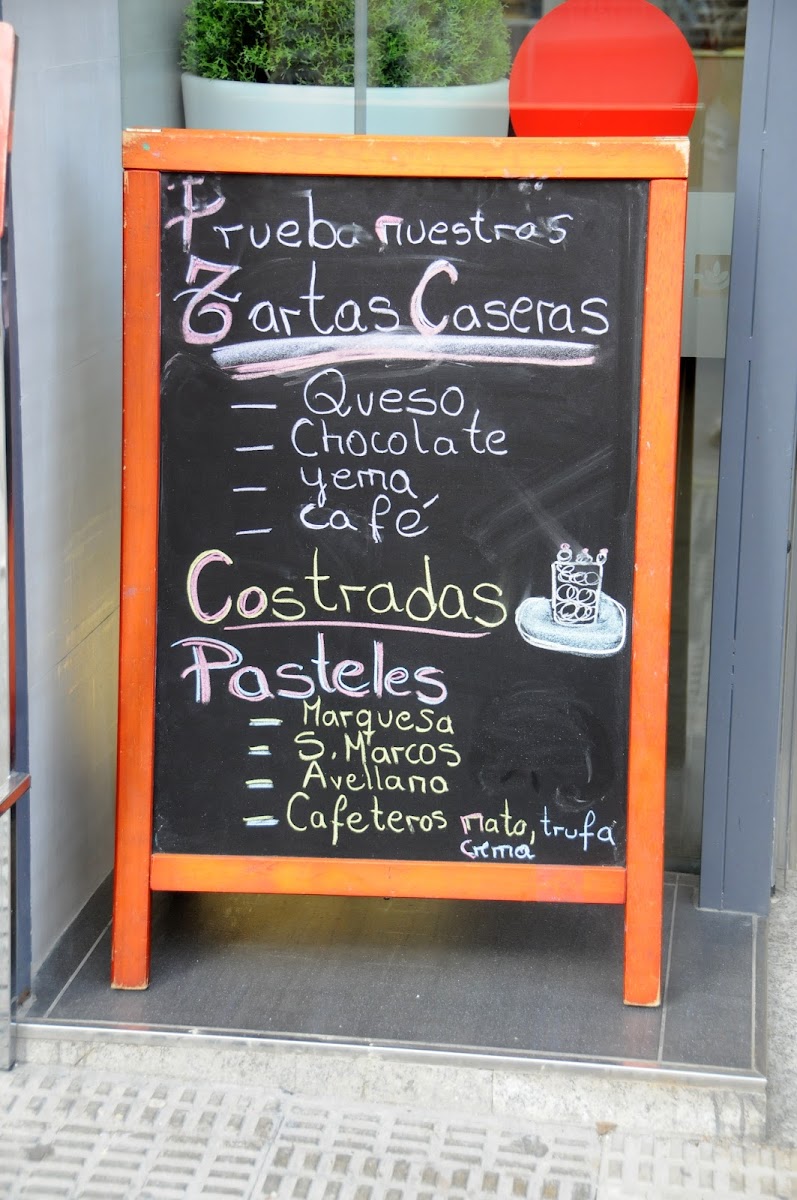 Prueba nuestras
Tartas Caseras
— Queso
— Chocolate
— yema
— café
Costradas
Pasteles
— Marquesa
— S. Marcos
— Avellana
— Cafeteros mato, trufa
crema